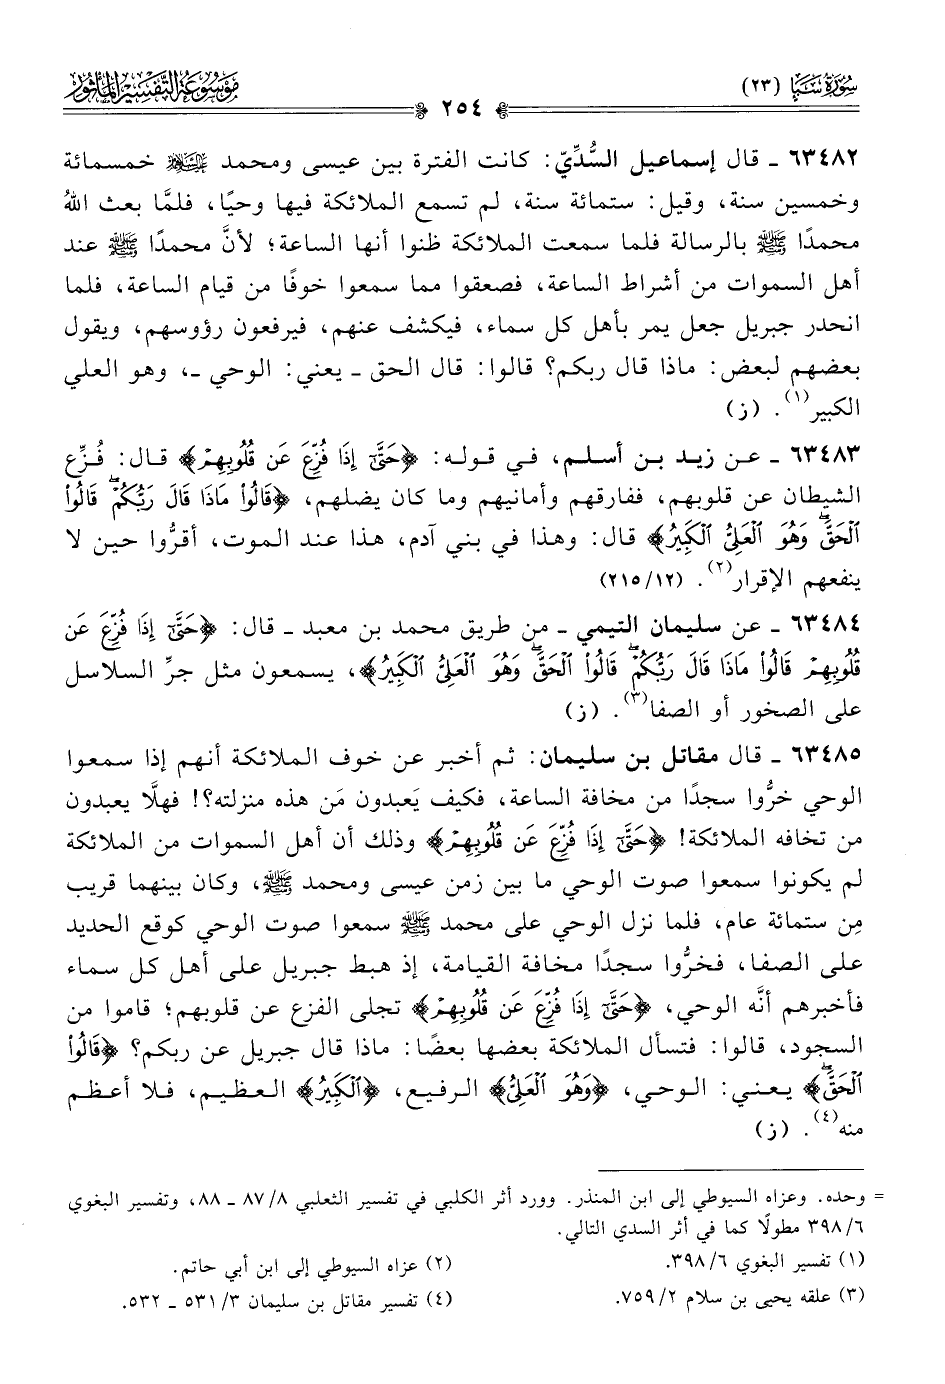 سورة سبإ (٢٣)
٢٥٤
موسوعة التفسير المأثور
٦٣٤٨٢ ـ قال إسماعيل السُّدِّيّ: كانت الفترة بين عيسى ومحمد ﷺ خمسمائة
وخمسين سنة، وقيل: ستمائة سنة، لم تسمع الملائكة فيها وحيًا، فلمَّا بعث اللهُ
محمدًا ﷺ بالرسالة فلما سمعت الملائكة ظنوا أنها الساعة؛ لأنَّ محمدًا ﷺ عند
أهل السموات من أشراط الساعة، فصعقوا مما سمعوا خوفًا من قيام الساعة، فلما
انحدر جبريل جعل يمر بأهل كل سماء، فيكشف عنهم، فيرفعون رؤوسهم، ويقول
بعضهم لبعض: ماذا قال ربكم؟ قالوا: قال الحق ـ يعني: الوحي ـ، وهو العلي
الكبير(١). (ز)
٦٣٤٨٣ ـ عن زيد بن أسلم، في قوله: ﴿حَتَّىٰٓ إِذَا فُزِّعَ عَن قُلُوبِهِمْ﴾ قال: فُزِّع
الشيطان عن قلوبهم، ففارقهم وأمانيهم وما كان يضلهم، ﴿قَالُوا۟ مَاذَا قَالَ رَبُّكُمْ ۖ قَالُوا۟
ٱلْحَقَّ ۖ وَهُوَ ٱلْعَلِىُّ ٱلْكَبِيرُ﴾ قال: وهذا في بني آدم، هذا عند الموت، أقرُّوا حين لا
ينفعهم الإقرار(٢). (٢١٥/١٢)
٦٣٤٨٤ ـ عن سليمان التيمي ـ من طريق محمد بن معبد ـ قال: ﴿حَتَّىٰٓ إِذَا فُزِّعَ عَن
قُلُوبِهِمْ قَالُوا۟ مَاذَا قَالَ رَبُّكُمْ ۖ قَالُوا۟ ٱلْحَقَّ ۖ وَهُوَ ٱلْعَلِىُّ ٱلْكَبِيرُ﴾، يسمعون مثل جرِّ السلاسل
على الصخور أو الصفا(٣). (ز)
٦٣٤٨٥ ـ قال مقاتل بن سليمان: ثم أخبر عن خوف الملائكة أنهم إذا سمعوا
الوحي خرُّوا سجدًا من مخافة الساعة، فكيف يَعبدون مَن هذه منزلته؟! فهلَّا يعبدون
من تخافه الملائكة! ﴿حَتَّىٰٓ إِذَا فُزِّعَ عَن قُلُوبِهِمْ﴾ وذلك أن أهل السموات من الملائكة
لم يكونوا سمعوا صوت الوحي ما بين زمن عيسى ومحمد ﷺ، وكان بينهما قريب
مِن ستمائة عام، فلما نزل الوحي على محمد ﷺ سمعوا صوت الوحي كوقع الحديد
على الصفا، فخرُّوا سجدًا مخافة القيامة، إذ هبط جبريل على أهل كل سماء
فأخبرهم أنَّه الوحي، ﴿حَتَّىٰٓ إِذَا فُزِّعَ عَن قُلُوبِهِمْ﴾ تجلى الفزع عن قلوبهم؛ قاموا من
السجود، قالوا: فتسأل الملائكة بعضها بعضًا: ماذا قال جبريل عن ربكم؟ ﴿قَالُوا۟
ٱلْحَقَّ ۖ﴾ يعني: الوحي، ﴿وَهُوَ ٱلْعَلِىُّ﴾ الرفيع، ﴿ٱلْكَبِيرُ﴾ العظيم، فلا أعظم
منه(٤). (ز)
= وحده. وعزاه السيوطي إلى ابن المنذر. وورد أثر الكلبي في تفسير الثعلبي ٨/ ٨٧ ـ ٨٨، وتفسير البغوي
٦/ ٣٩٨ مطولًا كما في أثر السدي التالي.
(١) تفسير البغوي ٦/ ٣٩٨.
(٢) عزاه السيوطي إلى ابن أبي حاتم.
(٣) علقه يحيى بن سلام ٢/ ٧٥٩.
(٤) تفسير مقاتل بن سليمان ٣/ ٥٣١ ـ ٥٣٢.